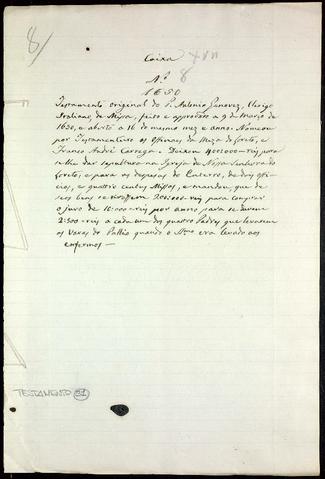 8/
Caixa XVII
Nº 8
1650
Testamento original do P. Antonio Ginovez, Clerigo
Italiano, de Missa, feito e approvado a 9 de Março de
1650, e aberto a 16 do mesmo mez e anno. Nomeou
por Testamenteiros os Officiaes da Meza do Loreto, e
Franco André Carrega. Deixou 400:000 reis para
se lhe dar sepultura na Igreja de Nossa Senhora do
Loreto, e para as despezas do Enterro, de dois offi-
cios, e quatro centas Missas, e mandou que de
seus bens se 200:000 reis para comprar
o juro de 10:000 reis por anno para se darem
2:500 reis a cada um dos quatro Padres que levassem
as Varas do Pallio quando o Smo era levado aos
enfermos —
TESTAMENTO 51